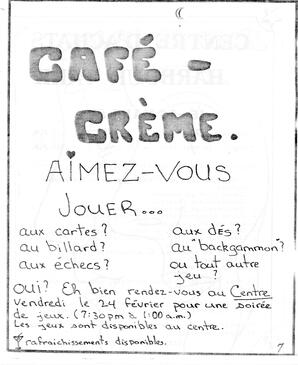 CAFÉ -
CRÈME.
AIMEZ-VOUS
JOUER...
aux cartes? aux dés?
au billard? au "backgammon"?
aux échecs? ou tout autre jeu?
OUI? Eh bien rendez-vous au Centre
Vendredi le 24 février pour une soirée
de jeux. (7:30 pm à 1:00 a.m.)
Les jeux sont disponibles au centre.
rafraichissements disponibles.
7